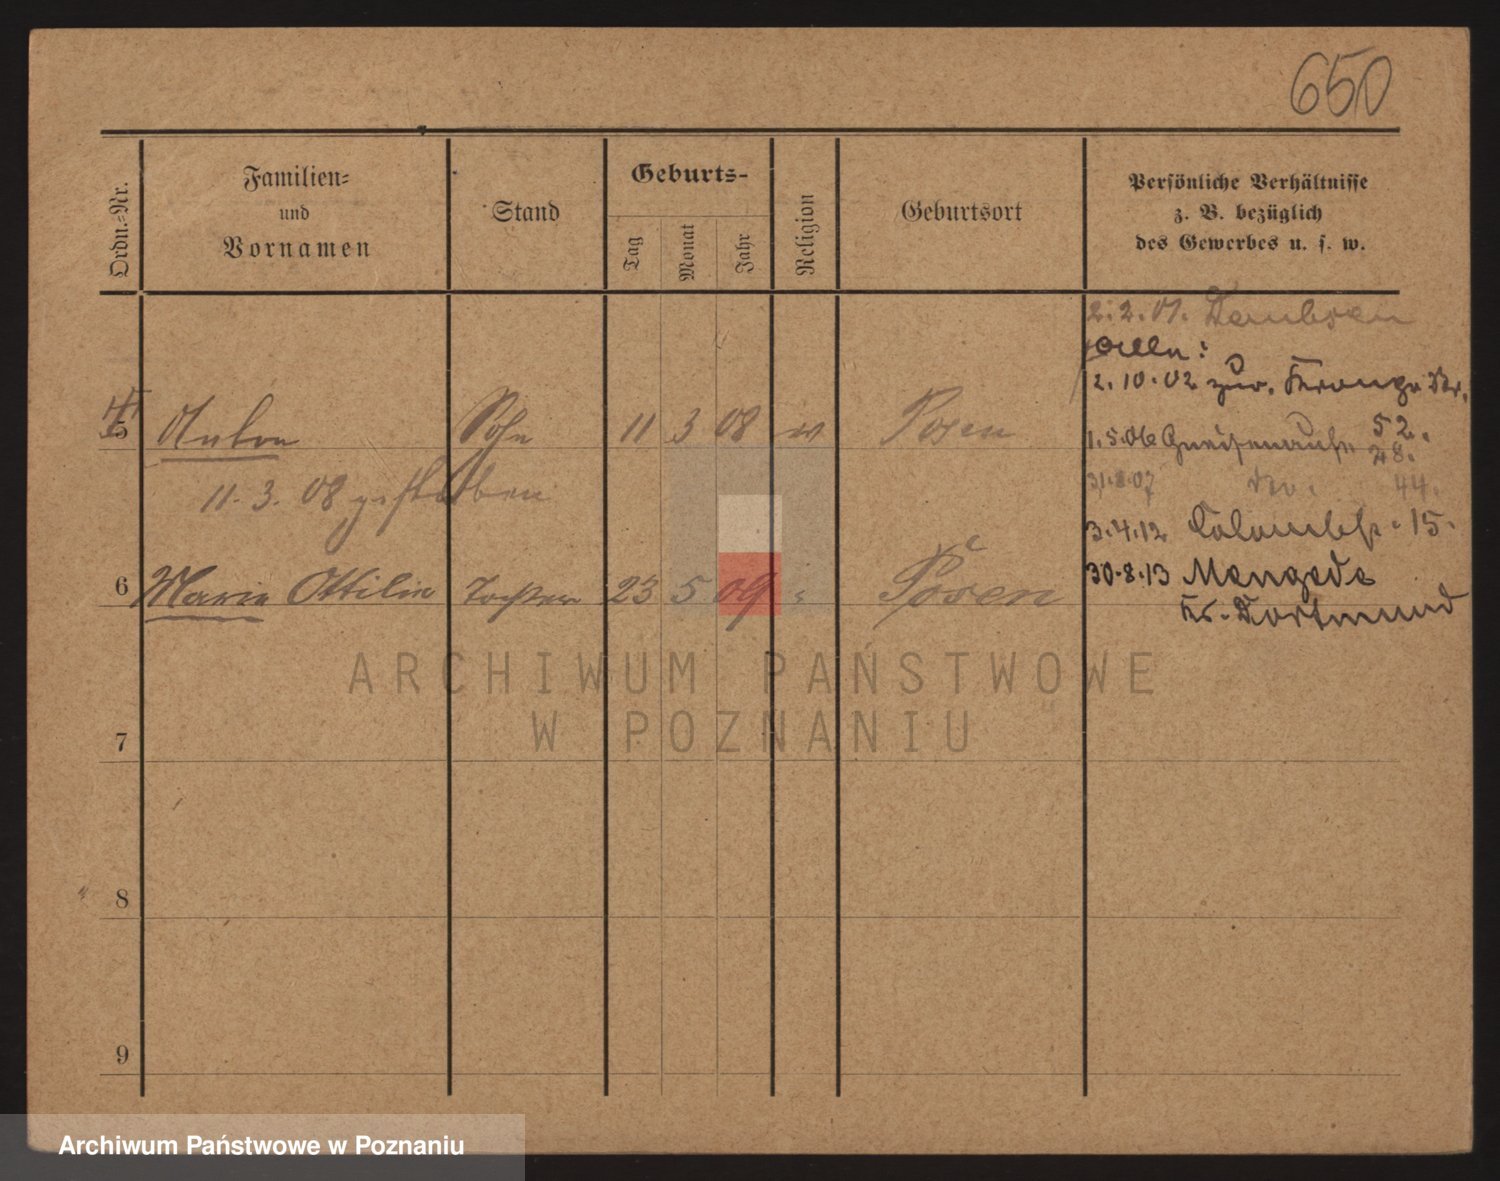 650
Ordn.-Nr.
Familien-
und
Vornamen
Stand
Geburts-
Tag
Monat
Jahr
Religion
Geburtsort
Persönliche Verhältnisse
z. B. bezüglich
des Gewerbes u. s. w.
2.2.01. Dembsen
Alle:
12.10.02 zur.
5 Anton Sohn 11 3 08 Posen
1.5.06 Gneisenaustr. 52.
28.
11.3.08 gestorben
31.8.07 44.
3.4.12 Colombstr. 15.
6 Marie Ottilie Tochter 23 5 09 " Posen
30.8.13 Mengede
Kr. Dortmund
ARCHIWUM PAŃSTWOWE
W POZNANIU
7
8
9
Archiwum Państwowe w Poznaniu